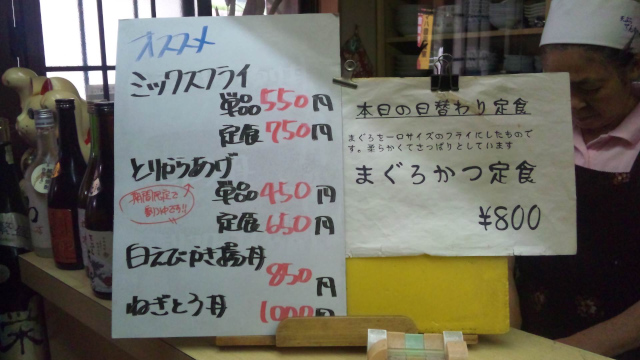 オススメ
ミックスフライ
単品550円
定食750円
とりからあげ
単品450円
定食650円
白えびかき揚丼
850円
ねぎとろ丼 1000円
本日の日替わり定食
まぐろを一口サイズのフライにしたもので
す。柔らかくてさっぱりとしています
まぐろかつ定食
¥800